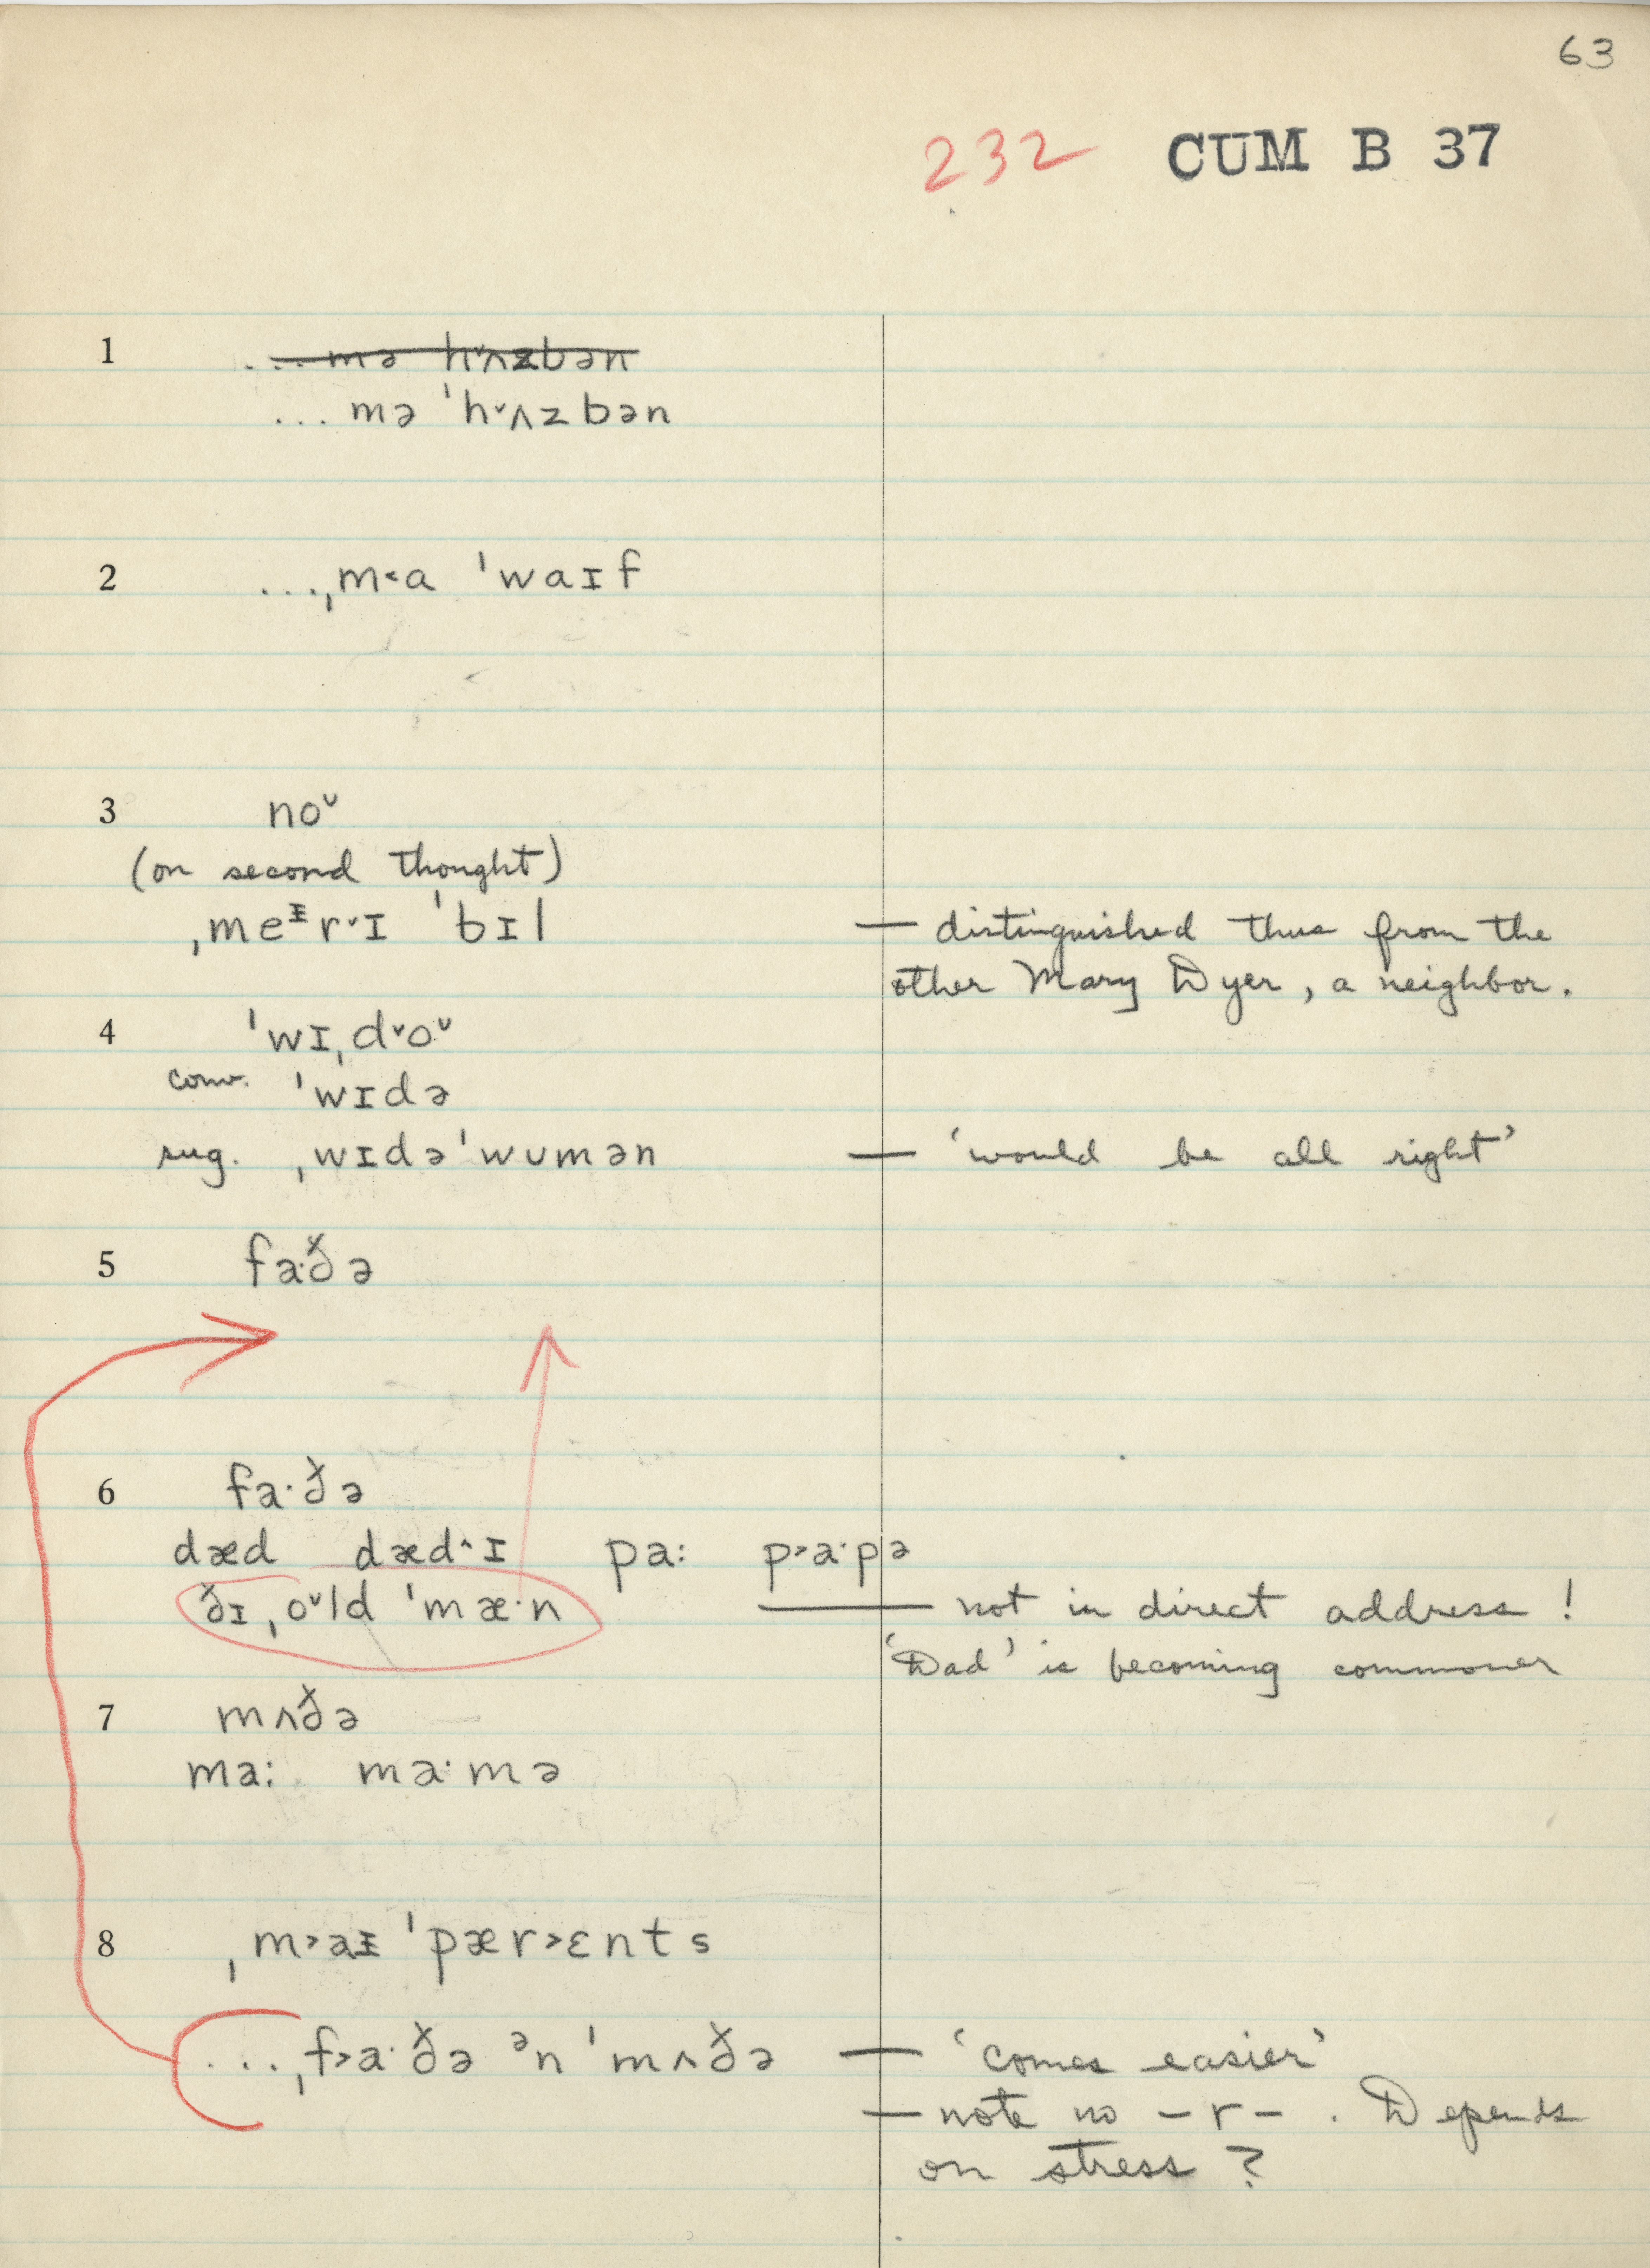 63
232 CUM B 37
1 ... mə hˇʌzbən
... mə ˈhˇʌzbən
2 ...ˌm˂a ˈwaɪf
3 noᵛ
(on second thought)
ˌmeᵻrˇɪ ˈbɪl — distinguished thus from the
other Mary Dyer, a neighbor.
4 ˈwɪˌdˇoᵛ
conv. ˈwɪdə
sug. ˌwɪdəˈwʊmən — ‘would be all right’
5 fa·ð̌ə
6 fa·ð̌ə
dæd dæd^ɪ pa: p˃a·pə
ð̌ɪˌoᵛld ˈmæ·n — not in direct address!
‘Dad’ is becoming commoner
7 mʌð̌ə
ma: ma·mə
8 ˌm˃aᵻ ˈpær˃ɛnts
...ˌf˃a·ð̌ə ᵊn ˈmʌð̌ə — ‘comes easier’
— note no –r– . Depends
on stress?